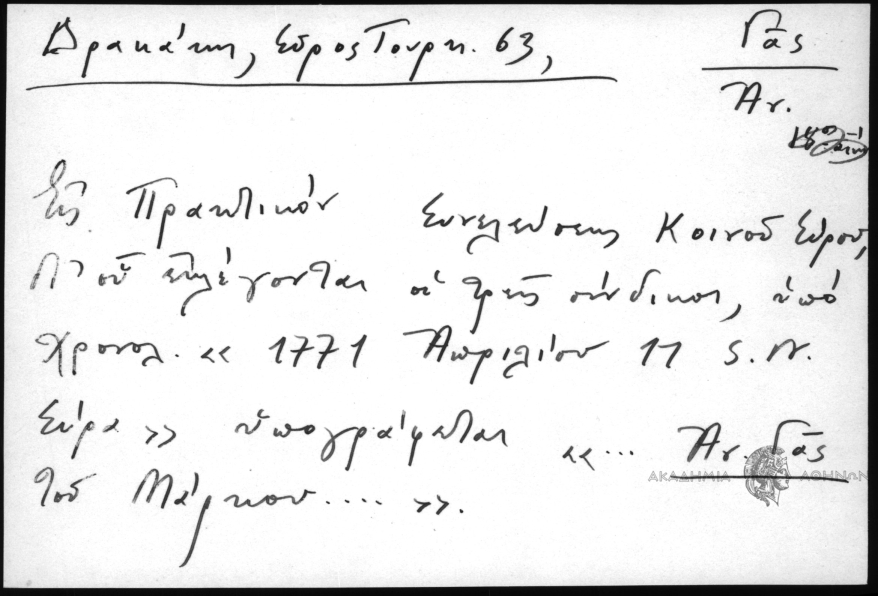 Δρακάκη, Σῦρος Τουρκ. 63,
Γᾶς
Ἀν.
Εἰς Πρακτικόν Συνελεύσεως Κοινοῦ Σύρου,
δι' οὗ ἐκλέγονται οἱ τρεῖς σύνδικοι, ὑπό
χρονολ. «1771 Ἀπριλίου 11 S. N.
Σύρα» ὑπογράφεται «... Ἀν. Γᾶς
τοῦ Μάρκου .... ».
ΑΚΑΔΗΜΙΑ ΑΘΗΝΩΝ